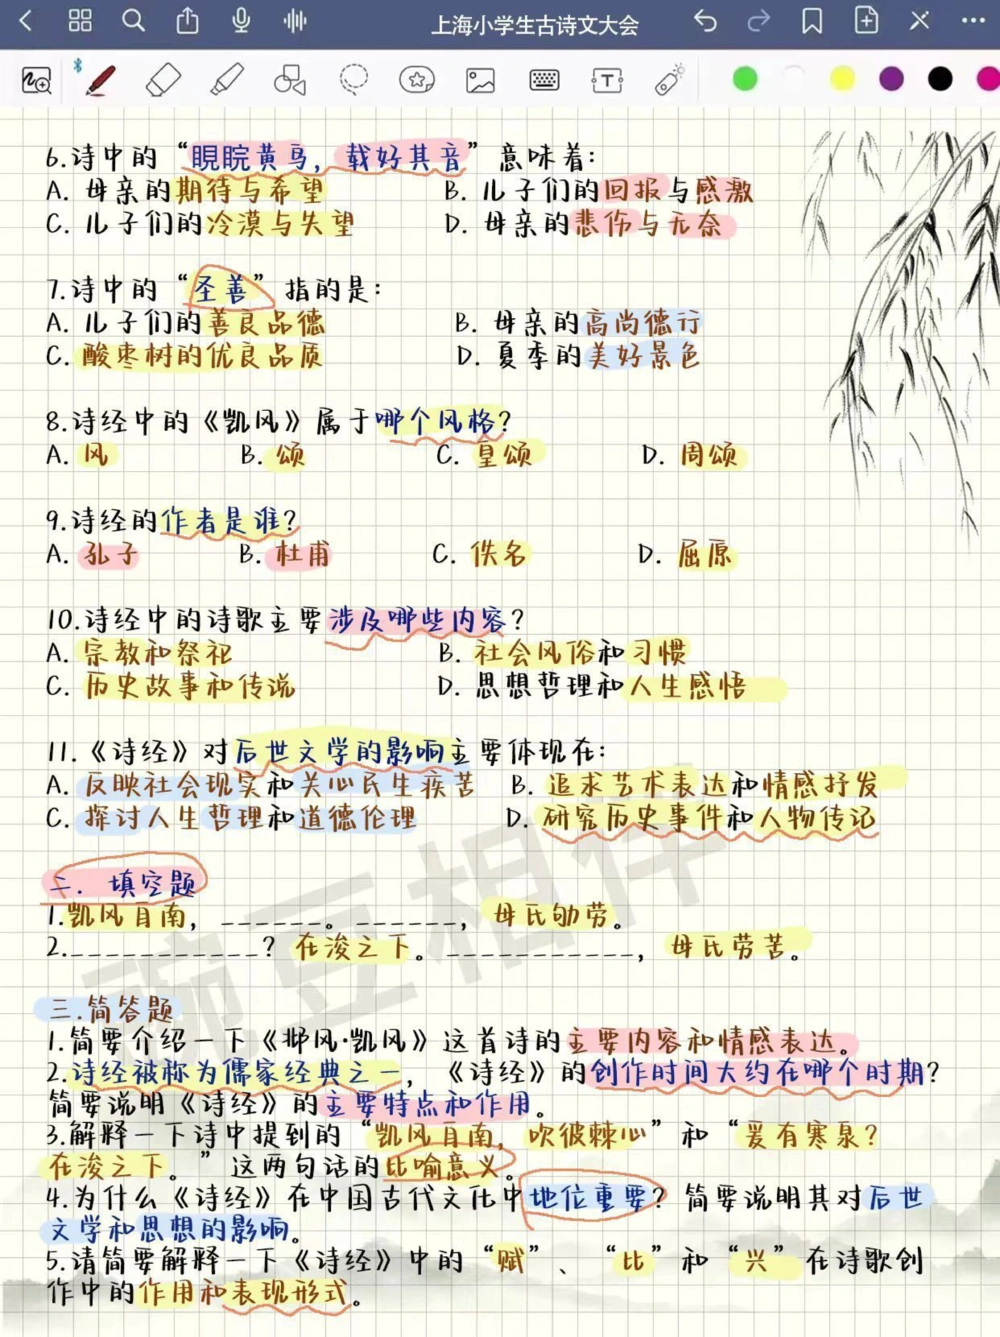 上海小学生古诗文大会
6.诗中的“睍睆黄鸟，载好其音”意味着：
A. 母亲的期待与希望 B. 儿子们的回报与感激
C. 儿子们的冷漠与失望 D. 母亲的悲伤与无奈
7.诗中的“圣善”指的是：
A. 儿子们的善良品德 B. 母亲的高尚德行
C. 酸枣树的优良品质 D. 夏季的美好景色
8.诗经中的《凯风》属于哪个风格？
A. 风 B. 颂 C. 皇颂 D. 周颂
9.诗经的作者是谁？
A. 孔子 B. 杜甫 C. 佚名 D. 屈原
10.诗经中的诗歌主要涉及哪些内容？
A. 宗教和祭祀 B. 社会风俗和习惯
C. 历史故事和传说 D. 思想哲理和人生感悟
11.《诗经》对后世文学的影响主要体现在：
A. 反映社会现实和关心民生疾苦 B. 追求艺术表达和情感抒发
C. 探讨人生哲理和道德伦理 D. 研究历史事件和人物传记
二. 填空题
1.凯风自南，______。______，母氏劬劳。
2.___________？在浚之下。___________，母氏劳苦。
三.简答题
1.简要介绍一下《邶风·凯风》这首诗的主要内容和情感表达。
2.诗经被称为儒家经典之一，《诗经》的创作时间大约在哪个时期？
简要说明《诗经》的主要特点和作用。
3.解释一下诗中提到的“凯风自南，吹彼棘心”和“爰有寒泉？
在浚之下。”这两句话的比喻意义。
4.为什么《诗经》在中国古代文化中地位重要？简要说明其对后世
文学和思想的影响。
5.请简要解释一下《诗经》中的“赋”、“比”和“兴”在诗歌创
作中的作用和表现形式。
豌豆相伴